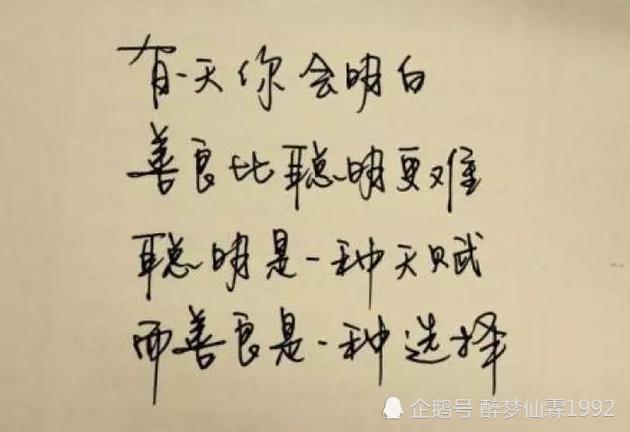 有一天你会明白
善良比聪明更难
聪明是一种天赋
而善良是一种选择
企鹅号 醉梦仙霖1992